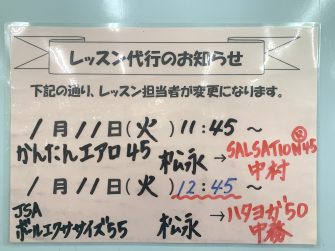 レッスン代行のお知らせ
下記の通り、レッスン担当者が変更になります。
1月11日(火)11:45〜
かんたんエアロ45 松永→SALSATION®45 中村
1月11日(火)12:45〜
JSA ボールエクササイズ55 松永→ハタヨガ50 中務